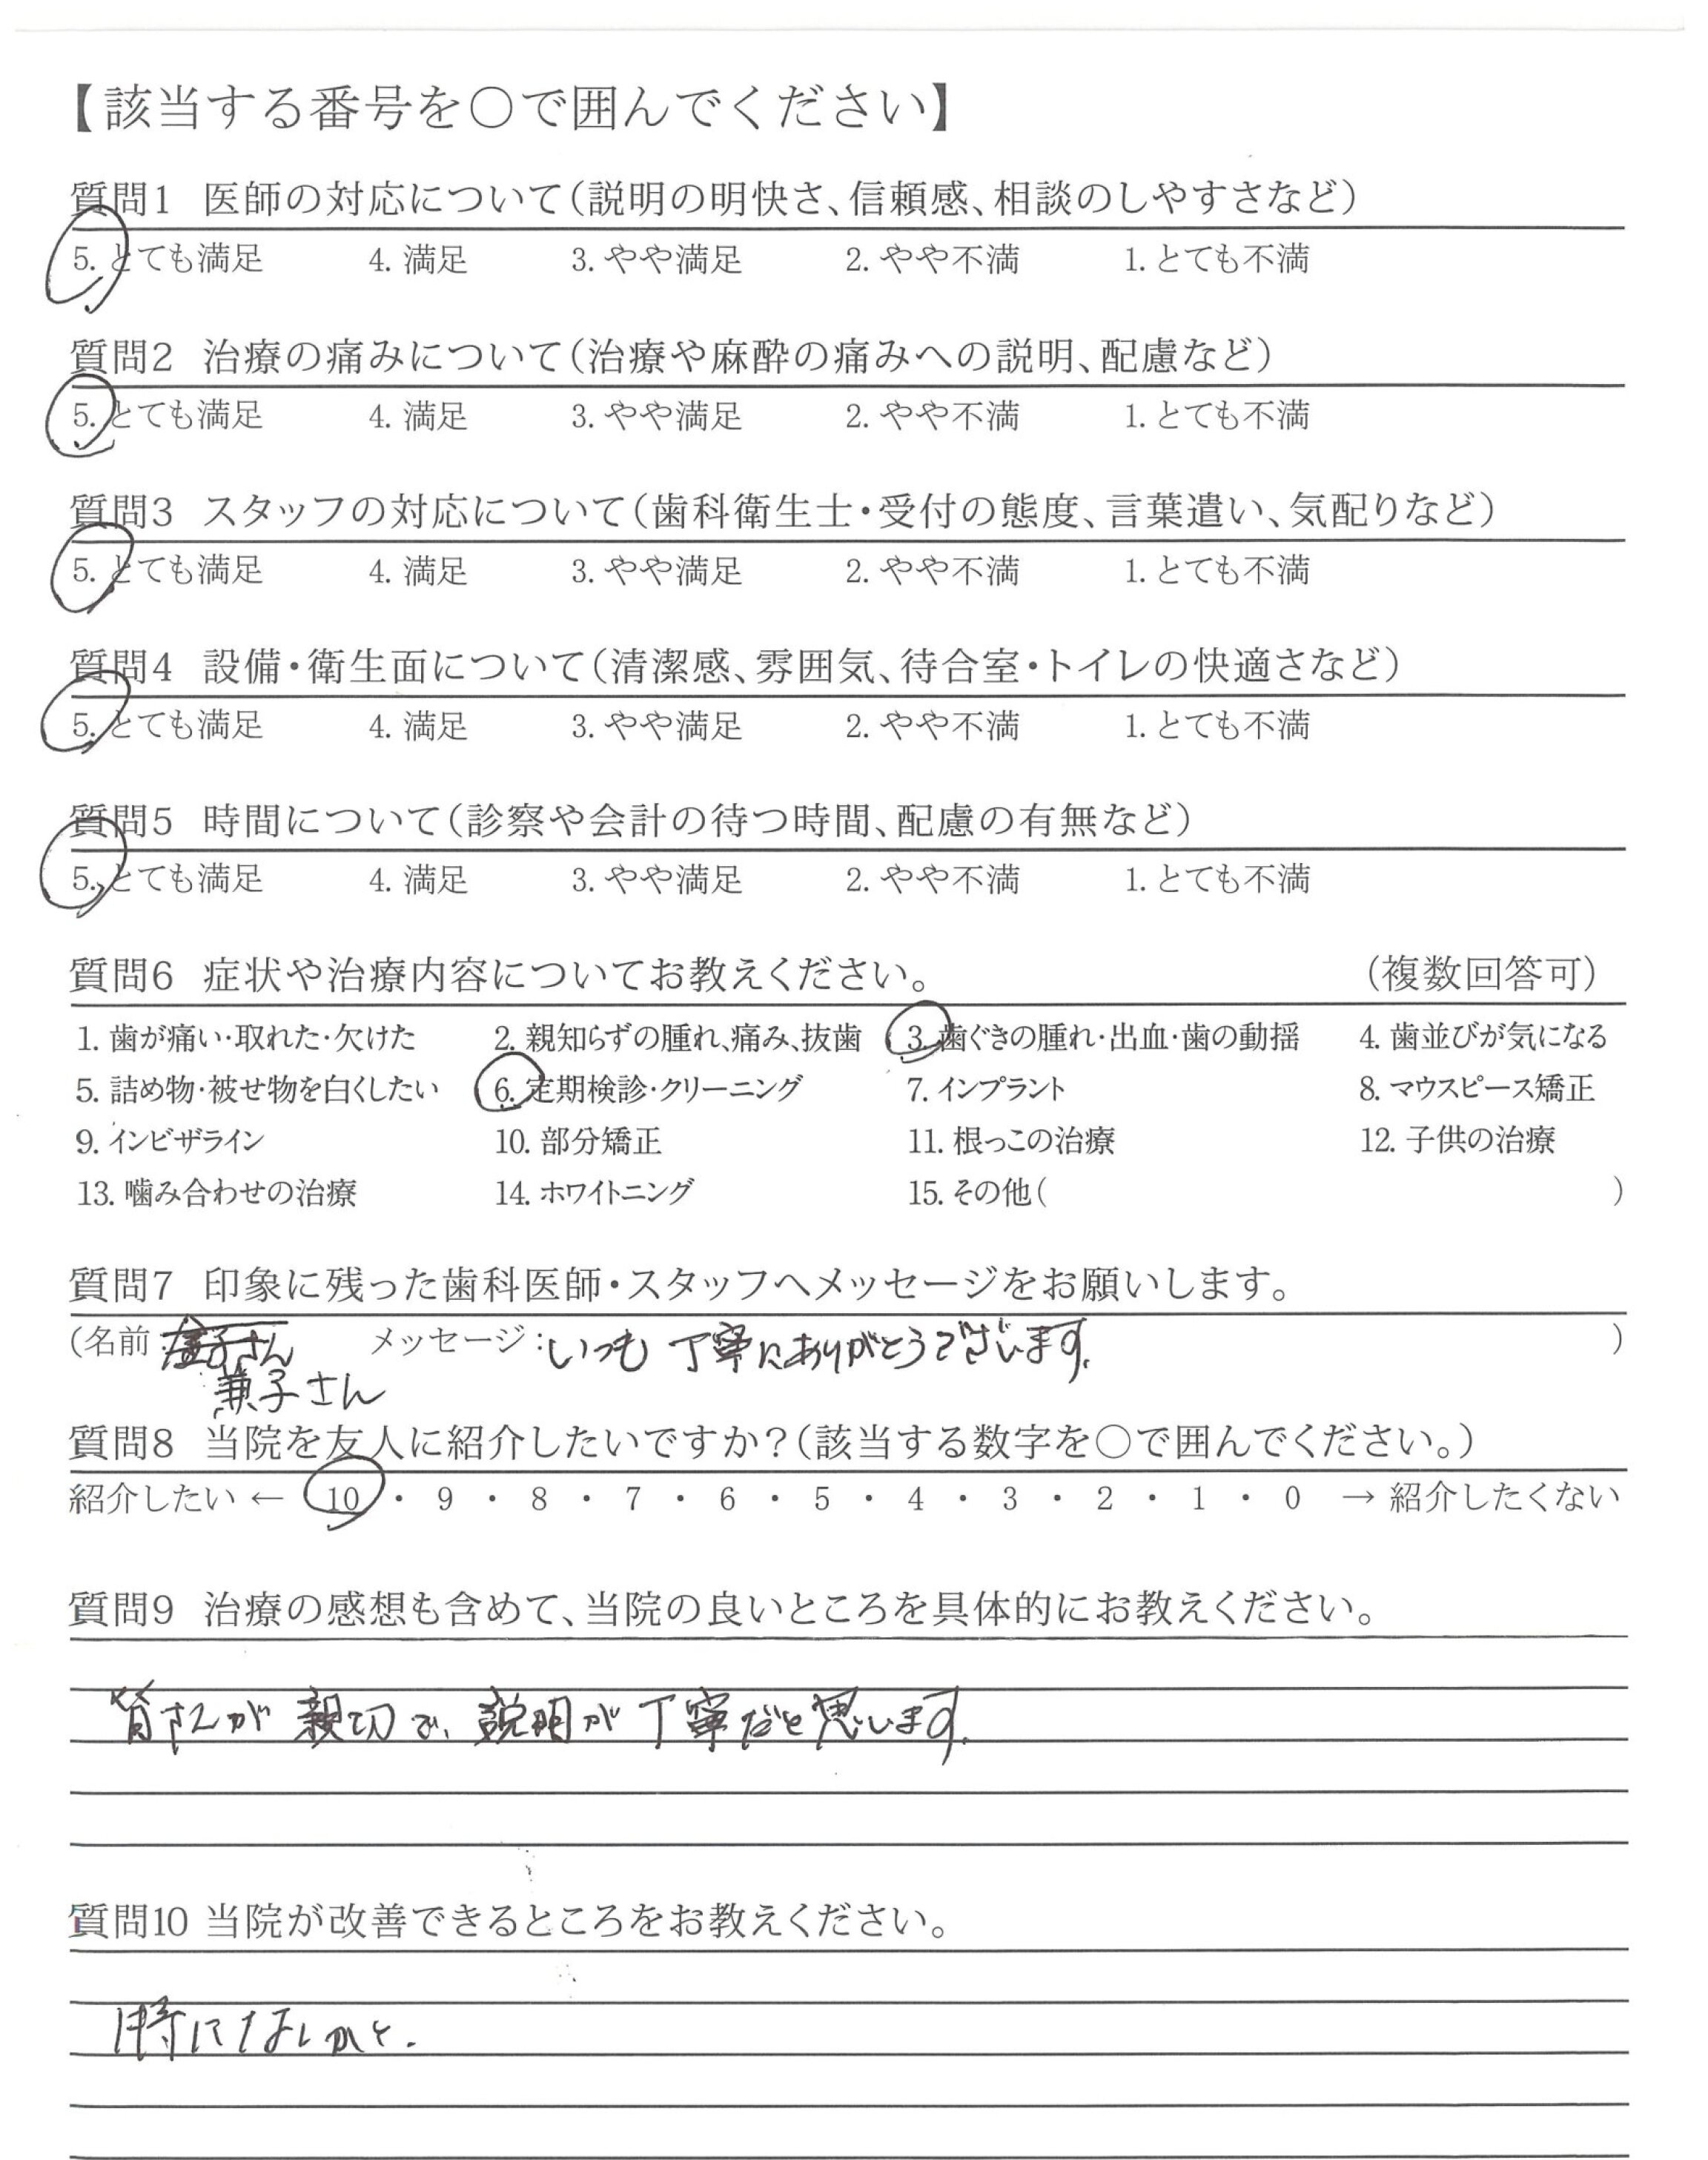 【該当する番号を○で囲んでください】
質問1 医師の対応について(説明の明快さ、信頼感、相談のしやすさなど)
5. とても満足 4. 満足 3. やや満足 2. やや不満 1. とても不満
質問2 治療の痛みについて(治療や麻酔の痛みへの説明、配慮など)
5. とても満足 4. 満足 3. やや満足 2. やや不満 1. とても不満
質問3 スタッフの対応について(歯科衛生士・受付の態度、言葉遣い、気配りなど)
5. とても満足 4. 満足 3. やや満足 2. やや不満 1. とても不満
質問4 設備・衛生面について(清潔感、雰囲気、待合室・トイレの快適さなど)
5. とても満足 4. 満足 3. やや満足 2. やや不満 1. とても不満
質問5 時間について(診察や会計の待つ時間、配慮の有無など)
5. とても満足 4. 満足 3. やや満足 2. やや不満 1. とても不満
質問6 症状や治療内容についてお教えください。 (複数回答可)
1. 歯が痛い・取れた・欠けた 2. 親知らずの腫れ、痛み、抜歯 3. 歯ぐきの腫れ・出血・歯の動揺 4. 歯並びが気になる
5. 詰め物・被せ物を白くしたい 6. 定期検診・クリーニング 7. インプラント 8. マウスピース矯正
9. インビザライン 10. 部分矯正 11. 根っこの治療 12. 子供の治療
13. 噛み合わせの治療 14. ホワイトニング 15. その他( )
質問7 印象に残った歯科医師・スタッフへメッセージをお願いします。
(名前: 子さん メッセージ:いつも丁寧にありがとうございます。 )
兼子さん
質問8 当院を友人に紹介したいですか?(該当する数字を○で囲んでください。)
紹介したい ← 10 ・ 9 ・ 8 ・ 7 ・ 6 ・ 5 ・ 4 ・ 3 ・ 2 ・ 1 ・ 0 → 紹介したくない
質問9 治療の感想も含めて、当院の良いところを具体的にお教えください。
皆さんが親切で、説明が丁寧だと思います。
質問10 当院が改善できるところをお教えください。
特にないかと.